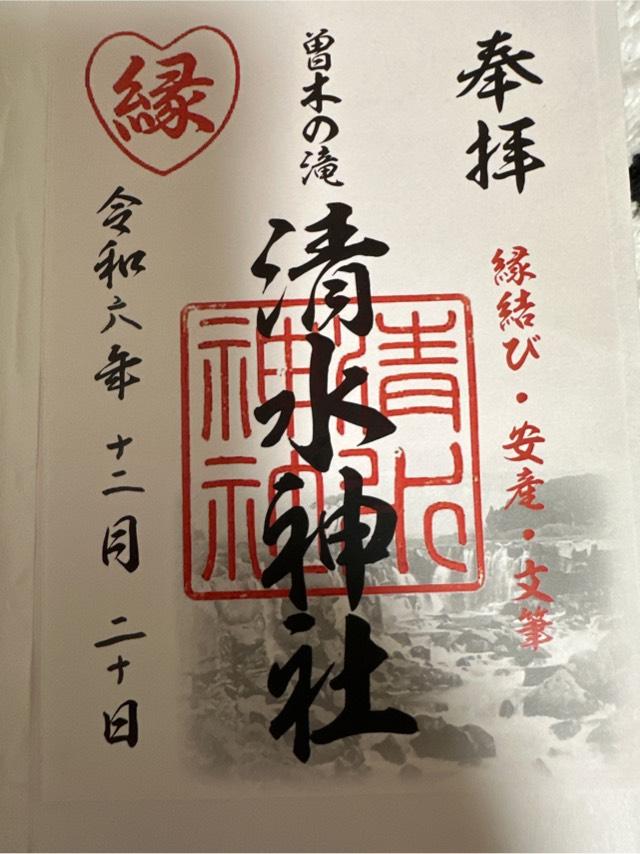 奉拝
縁結び・安産・文筆
曽木の滝
清水神社
清水神社
縁
令和六年 十二月 二十日